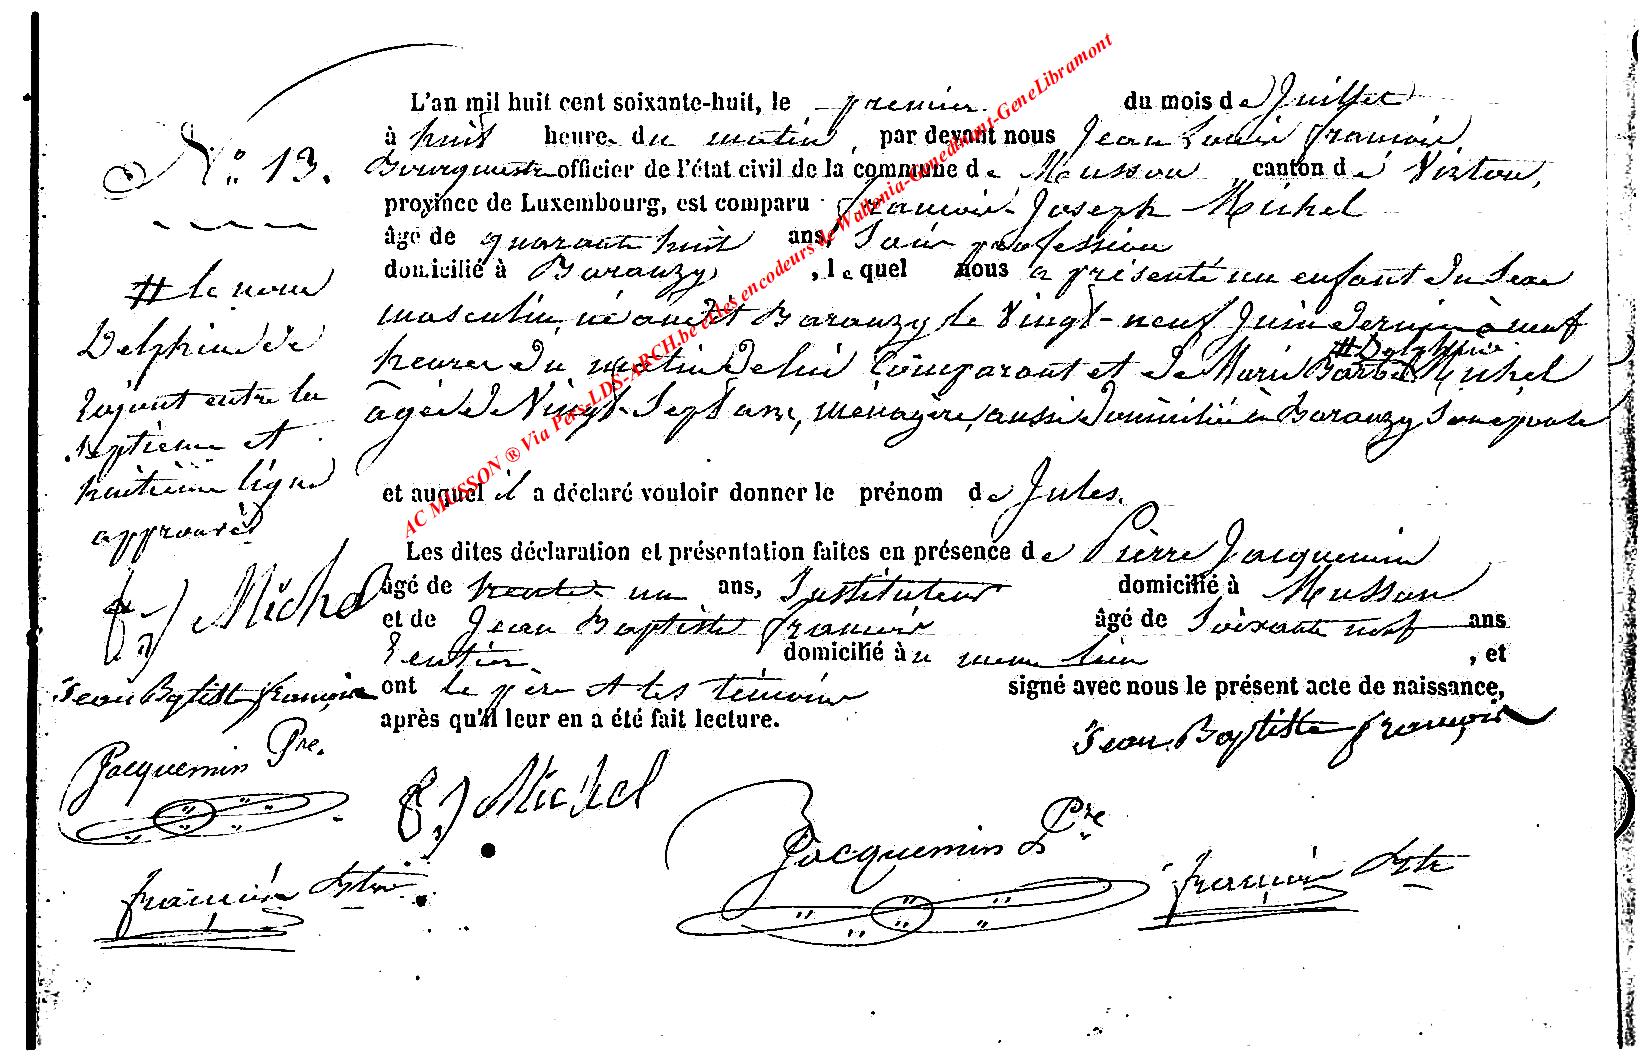 N.° 13.
L'an mil huit cent soixante-huit, le premier du mois de Juillet
à huit heure du matin, par devant nous Jean Louis François,
Bourgmestre officier de l'état civil de la commune de Musson, canton de Virton,
province de Luxembourg, est comparu François Joseph Michel
âgé de quarante huit ans, Sans profession
domicilié à Baranzy, lequel nous a présenté un enfant du sexe
masculin, né audit Baranzy le Vingt-neuf Juin dernier à neuf
# Delphine
heures du matin de lui Comparant et de Marie Barbe Michel
agée de Vingt-Sept ans, ménagère, aussi domiciliée à Baranzy Son épouse
et auquel il a déclaré vouloir donner le prénom de Jules.
Les dites déclaration et présentation faites en présence de Pierre Jacquemin
âgé de trente un ans, Instituteur domicilié à Musson
et de Jean Baptiste François âgé de Soixante neuf ans
Rentier domicilié au même lieu, et
ont le père et les témoins signé avec nous le présent acte de naissance,
après qu'il leur en a été fait lecture.
# le nom
Delphine de
Rajout entre la
septième et
huitième ligne
approuvé
f J Michel
Jean Baptiste françois
Jacquemin Pre.
françois
Jean Baptiste françois
f J Michel
Jacquemin Pre
françois
AC MUSSON ® Via Pers-LDS-ARCH.be et les encodeurs de Wallonia-Genedinant-GeneLibramont